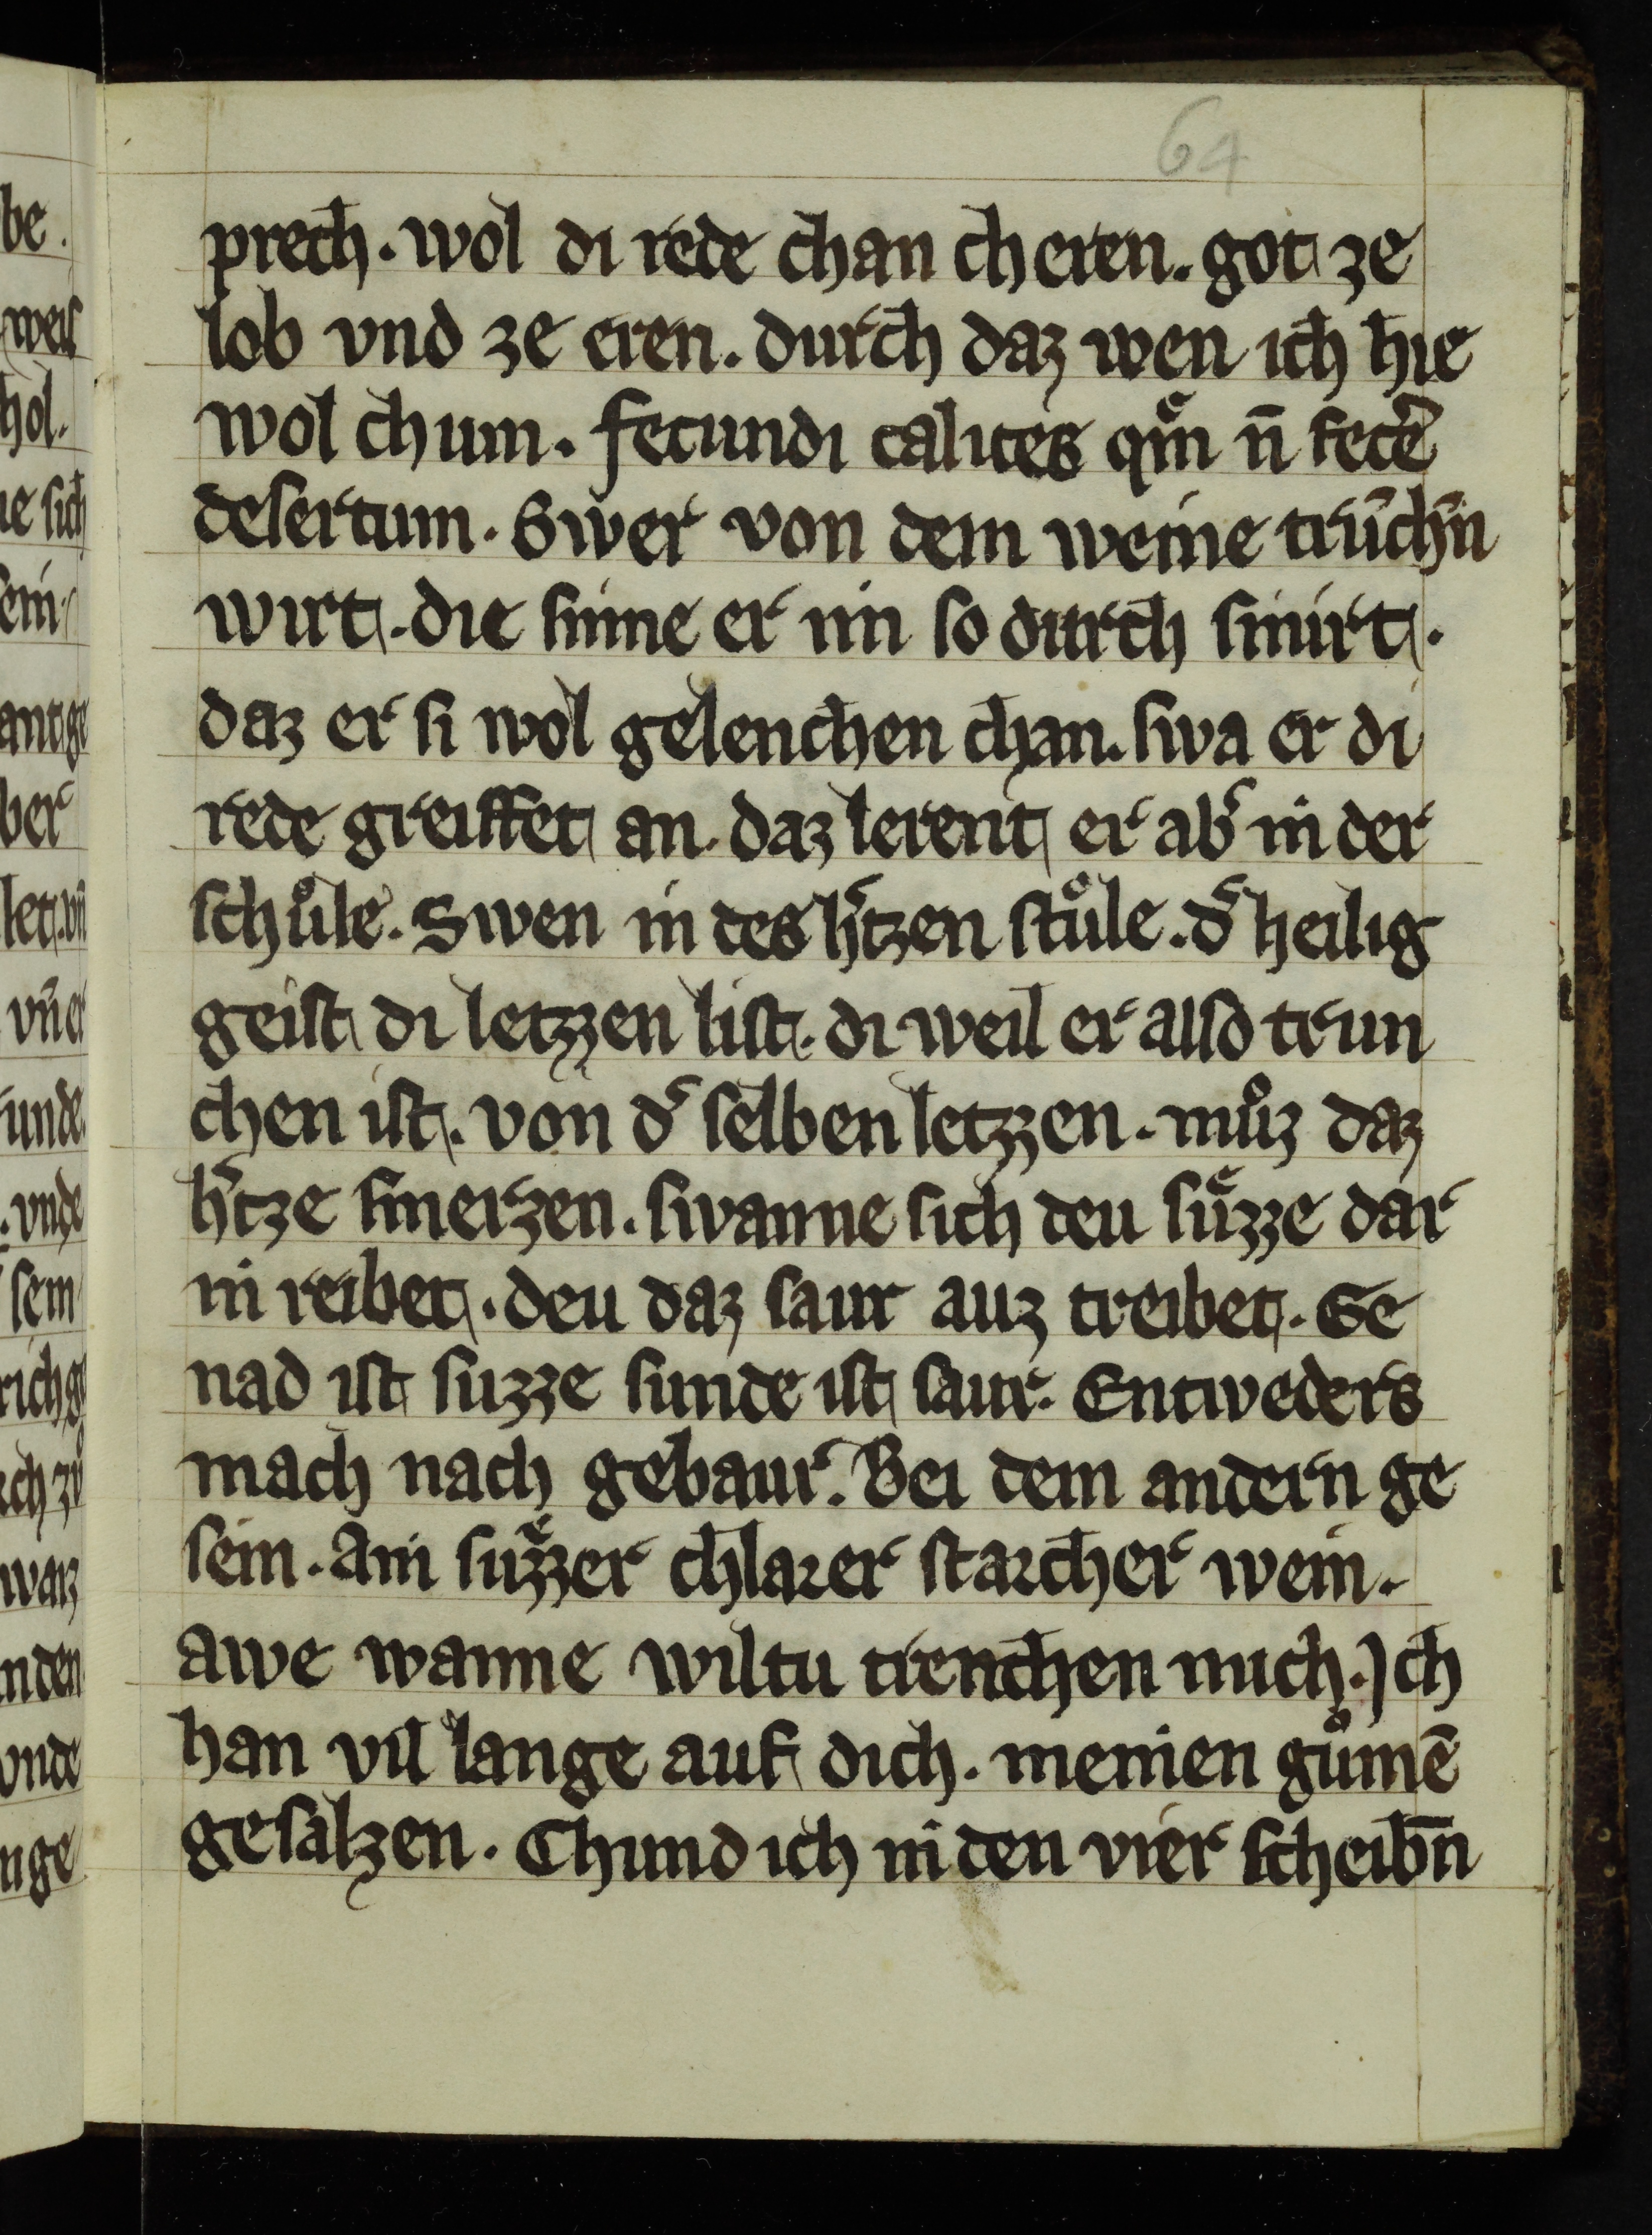 64
prech. wol di rede chan cheren. got ze
lob vnd ze eren. durch daz wen ich hie
wol chum. fecundi calices qm̃ n̄ fecẽ
desertum. Swer von dem weine trũchñ
wirt. die sinne er im so durch smirt.
daz er si wol gelenchen chan. swa er di
rede greiffet an. daz lerent er abˀ in der
schůle. Swen in des hˀtzen stůle. dˀ heilig
geist di letzzen list. di weil er also trun
chen ist. von dˀ selben letzzen. můz daz
hˀtze smerzen. swanne sich deu sůzze dar
in reibet. deu daz saur auz treibet. Ge
nad ist suzze sunde ist saur. Entweders
mach nach gebaur. Bei dem andern ge
sein. Ain sůzzer chlarer starcher wein.
awe wanne wiltu trenchen mich. Ich
han vil lange auf dich. meinen gůmē
gesalzen. Chund ich in den vier scheibn̄
be.
weis
hol.
ne sich
sein
ant ge
ber
let. vn̄
vn̄ er
unde.
vnde
sein
rich ge
ch zů
warz
nden
vnde
nge